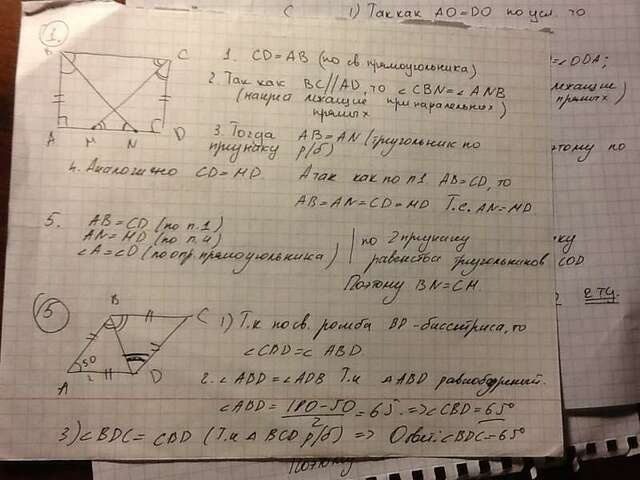 C 1) Так как AO=DO по усл. то
1.
B C
A M N D
1. CD=AB (по св прямоугольника)
2. Так как BC//AD, то ∠CBN=∠ANB
(накрест лежащие при паралельных)
прямых
3. Тогда AB=AN (треугольник по
признаку р/б)
4. Аналогично CD=MD А так как по п.1 AB=CD, то
AB=AN=CD=MD Т.е. AN=MD
5. AB=CD (по п.1)
AN=MD (по п.4)
∠A=∠D (по опр. прямоугольника)
по 2 признаку
равенства треугольников
Поэтому BN=CM.
COD
=∠ODA;
лежащие
прямых)
поэтому по
5
B C
50
A D
1) Т.к по св. ромба BD-биссектриса, то
∠CBD=∠ABD.
2. ∠ABD=∠ADB т.к △ABD равнобедренный.
∠ABD = 180-50/2 = 65. => ∠CBD=65°
3) ∠BDC=CBD (т.к △BCD р/б) => Ответ: ∠BDC=65°
Поэтому